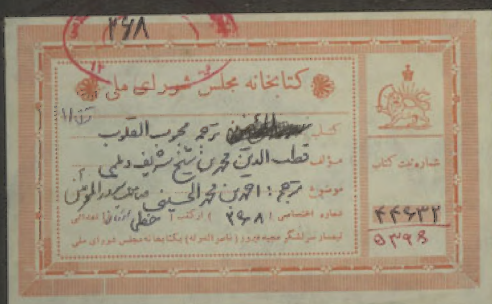 ۳۶۸
کتابخانه مجلس شورای ملی
کتاب ترجمه محبوب القلوب
مؤلف قطب الدین محمد بن شیخ شریف دیلمی
موضوع مترجم: احمد بن محمد الحسینی
شماره اختصاصی (۳۶۸) از کتب خطی اهدائی
تیمسار سرلشگر مجید فیروز (ناصرالدوله) بکتابخانه مجلس شورای ملی
شماره ثبت کتاب
۴۴۶۳۲
۵۳۹۶